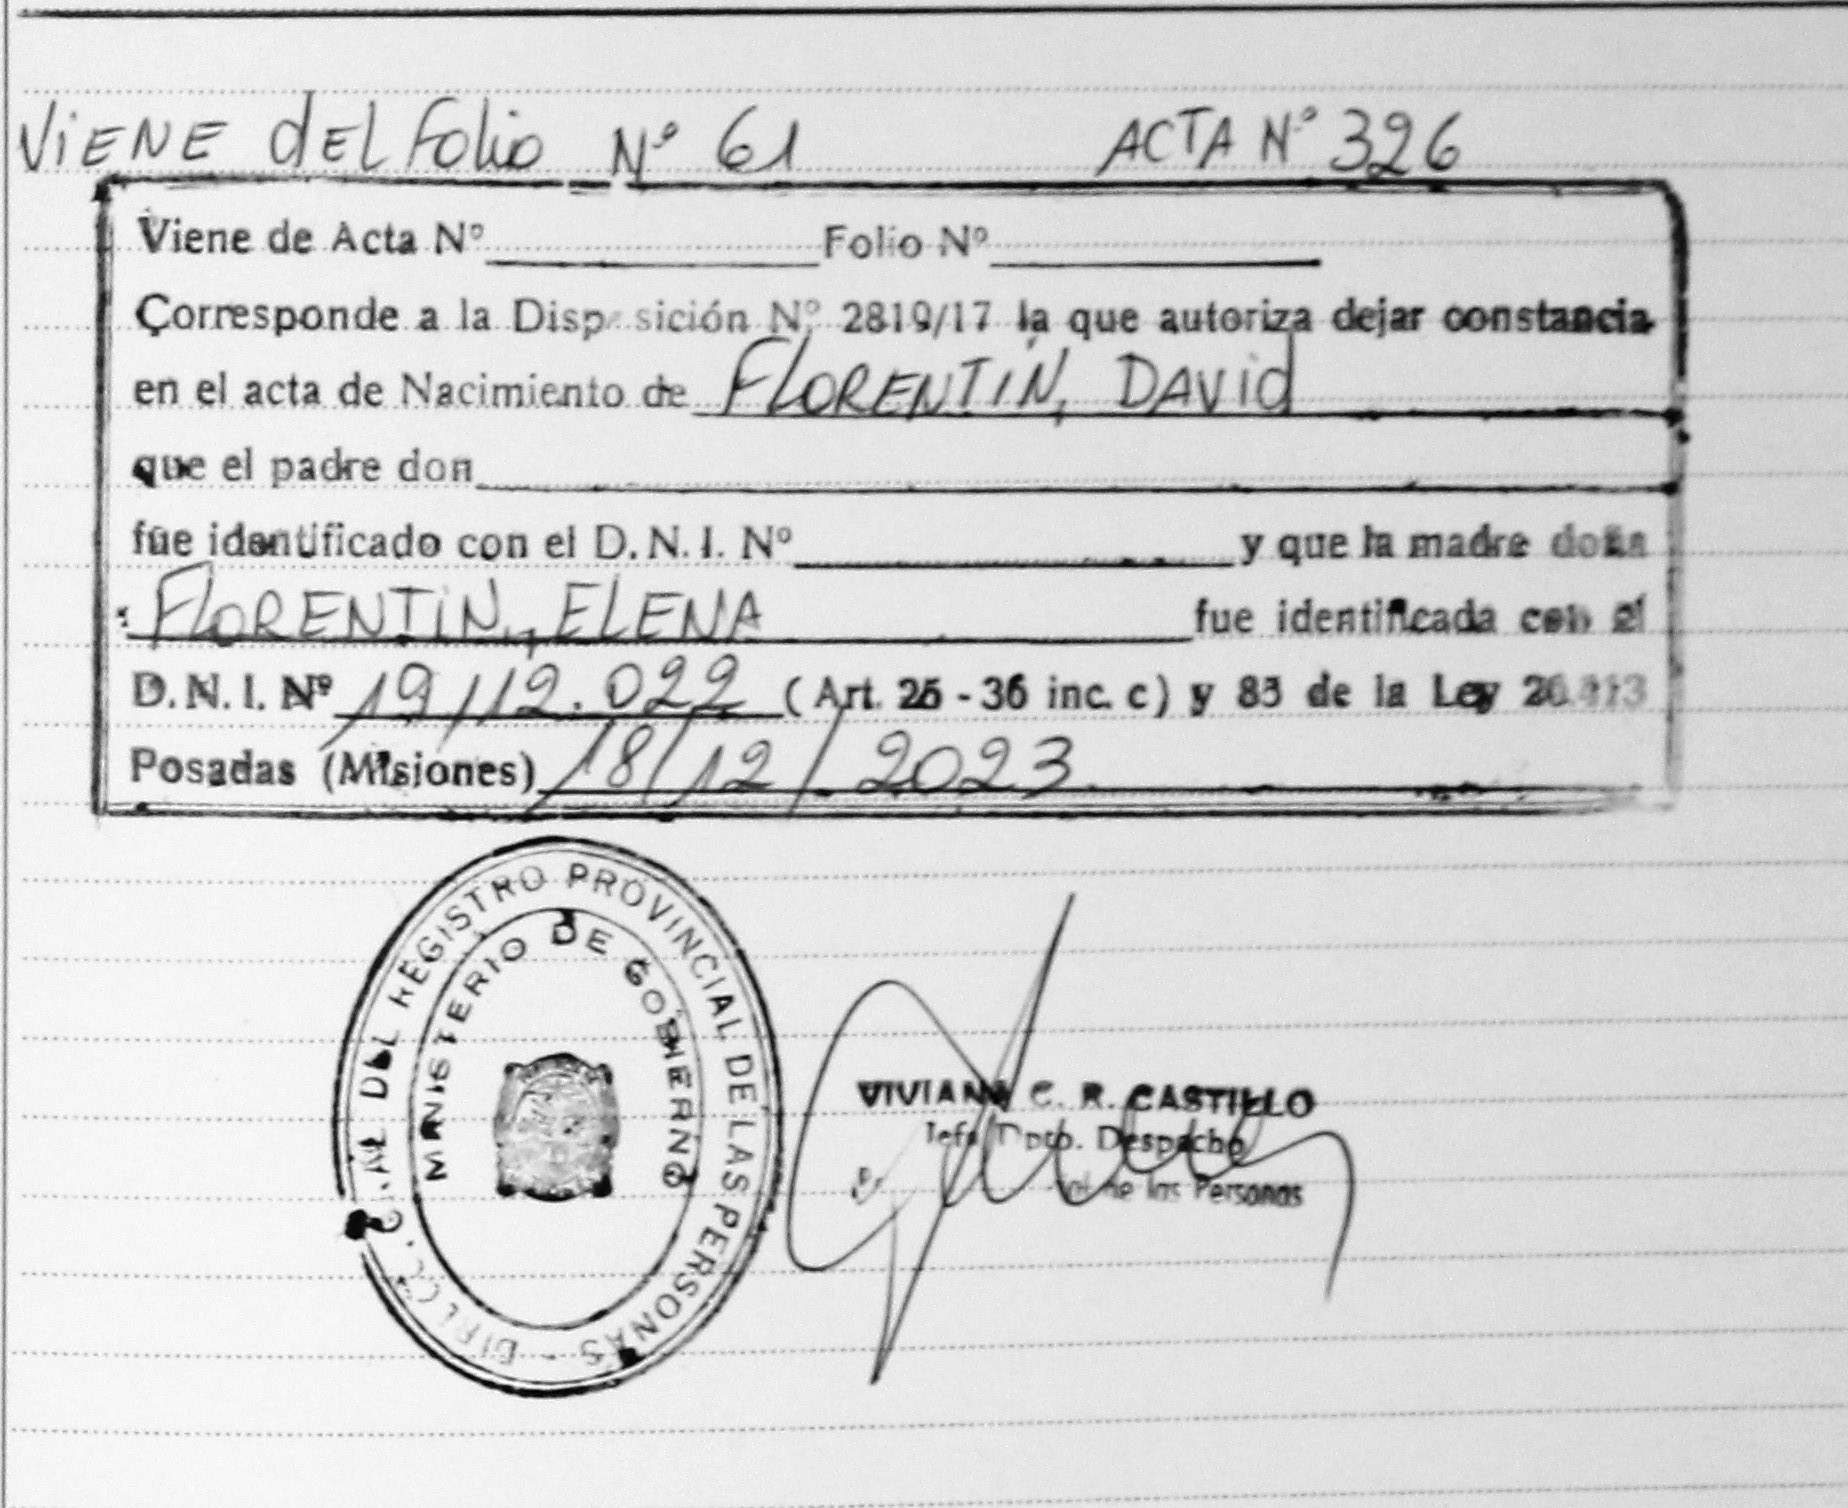 ViENE dEL Folio Nº 61 ACTA Nº 326
Viene de Acta Nº Folio Nº
Corresponde a la Disposición Nº 2819/17 la que autoriza dejar constancia
en el acta de Nacimiento de FLORENTÍN, DAViD
que el padre don
fue identificado con el D.N.I. Nº y que la madre doña
FLORENTíN, ELENA fue identificada con el
D.N.I. Nº 19112.022 (Art. 26 - 36 inc. c) y 83 de la Ley 26.413
Posadas (Misiones) 18/12/2023
DIRECC. GRAL DEL REGISTRO PROVINCIAL DE LAS PERSONAS -
MINISTERIO DE GOBIERNO
VIVIANA C. R. CASTILLO
Jefa Dpto. Despacho
de las Personas